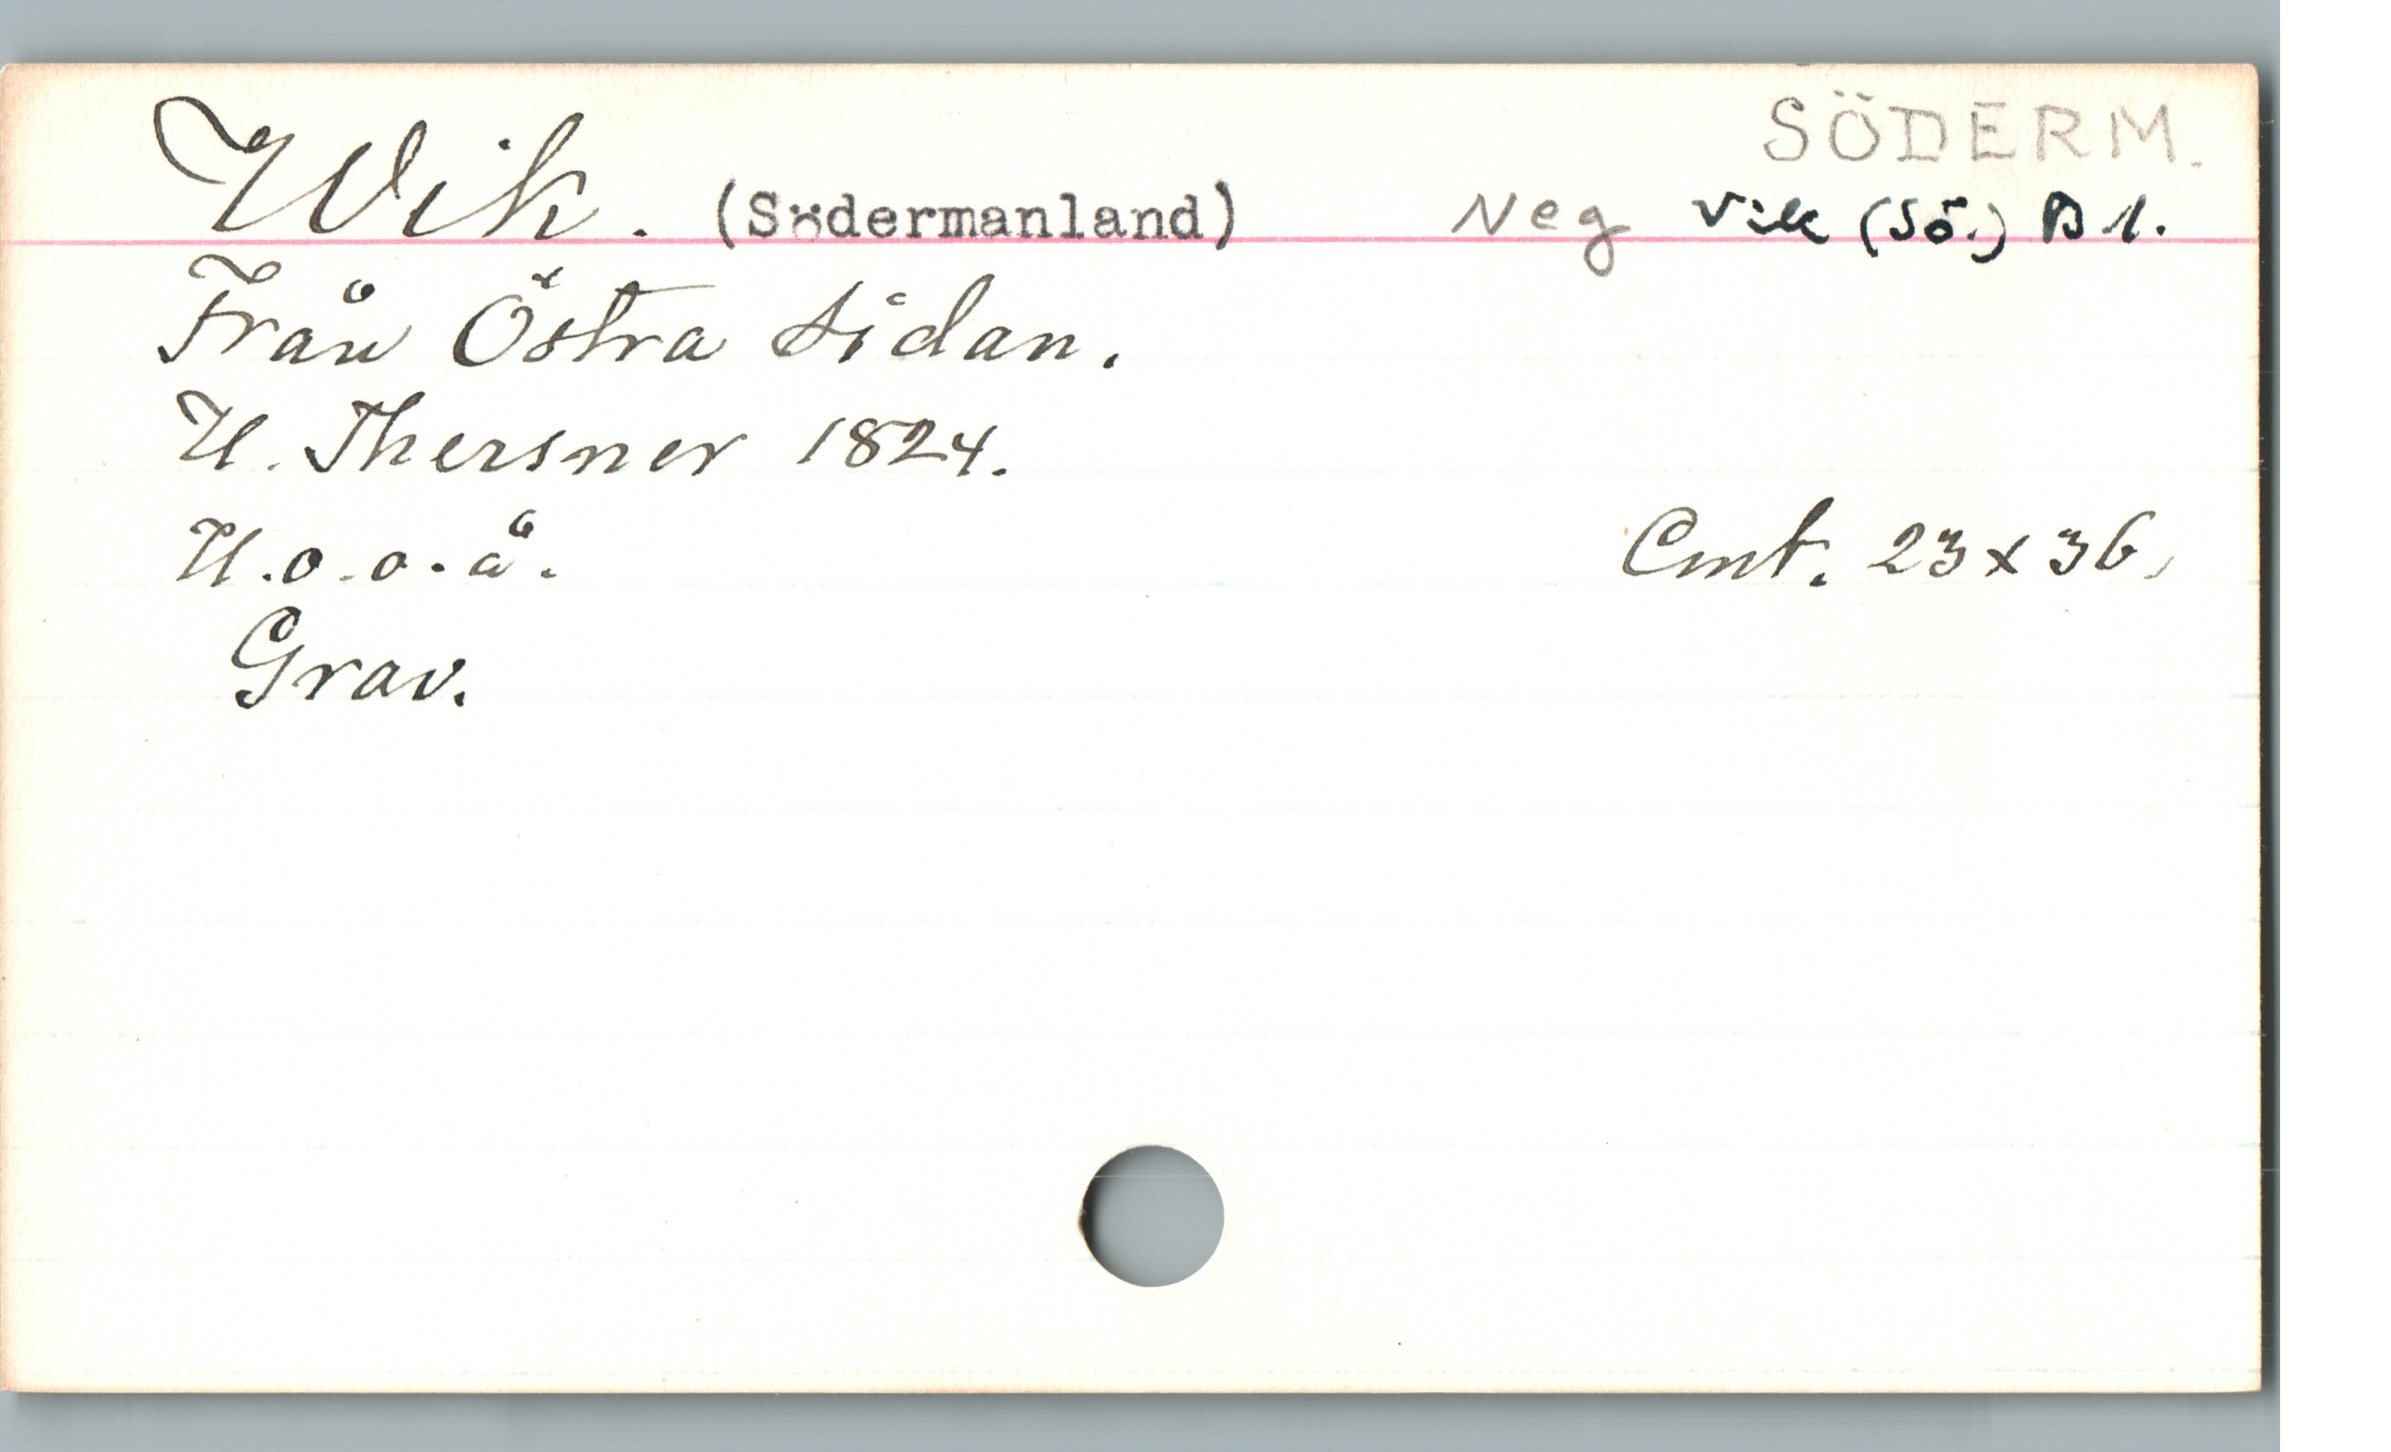 SÖDERM.
Wik. (Södermanland) Neg Vik (Sö.) B 1.
Från Östra sidan.
U. Thersner 1824.
U.o.o.å. Cmt. 23x36.
Grav.